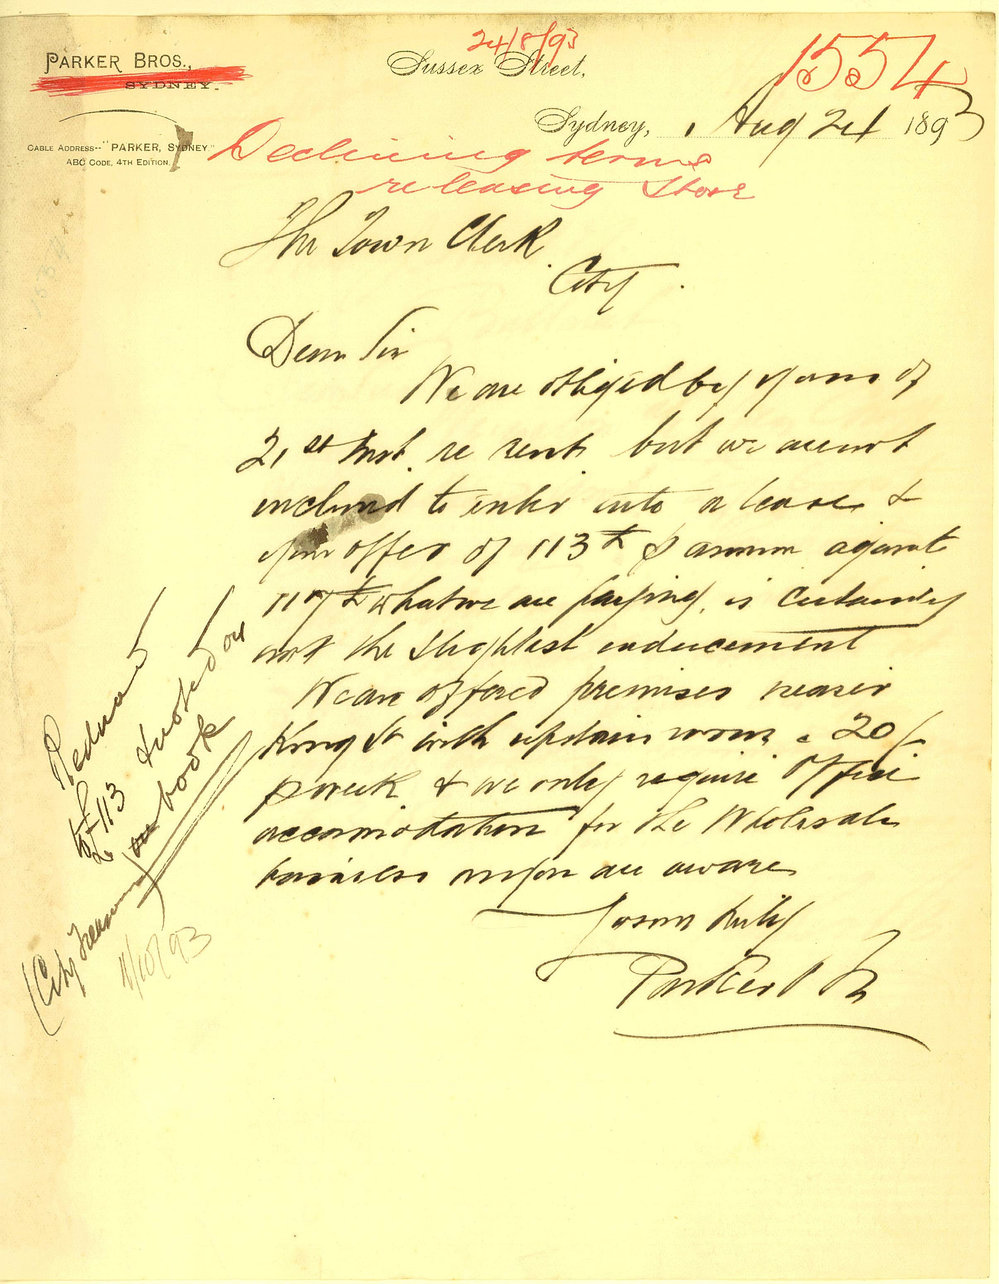 24/8/93
1554
PARKER BROS.,
SYDNEY.
Sussex Street,
Sydney, Aug 24 1893
CABLE ADDRESS-- "PARKER, SYDNEY."
ABC CODE, 4TH EDITION.
Declining terms
re leasing Store
The Town Clerk
City.
Dear Sir
We are obliged by yours of
21st Inst. re rent, but we are not
inclined to enter into a lease &
your offer of 113£ P annum against
117£ what we are paying, is certainly
not the slightest inducement
We are offered premises nearer
King St with upstairs rooms @ 20/-
P week & we only require Office
accomodation for the Wholesale
business as you are aware
Yours truly
Parker Bros
to £113 & noted on
book
(City Treasurer
11/10/93